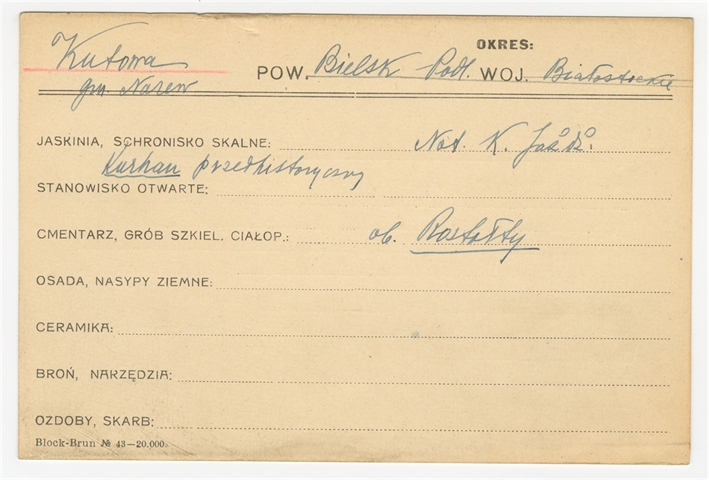 OKRES:
Kutowa POW. Bielsk Podl. WOJ. Białostockie
gm. Narew
JASKINIA, SCHRONISKO SKALNE: Not. K. Jażdż.
Kurhan przedhistoryczny
STANOWISKO OTWARTE:
CMENTARZ, GRÓB SZKIEL. CIAŁOP.: ob. Rostołty
OSADA, NASYPY ZIEMNE:
CERAMIKA:
BROŃ, NARZĘDZIA:
OZDOBY, SKARB:
Block-Brun № 43—20.000.